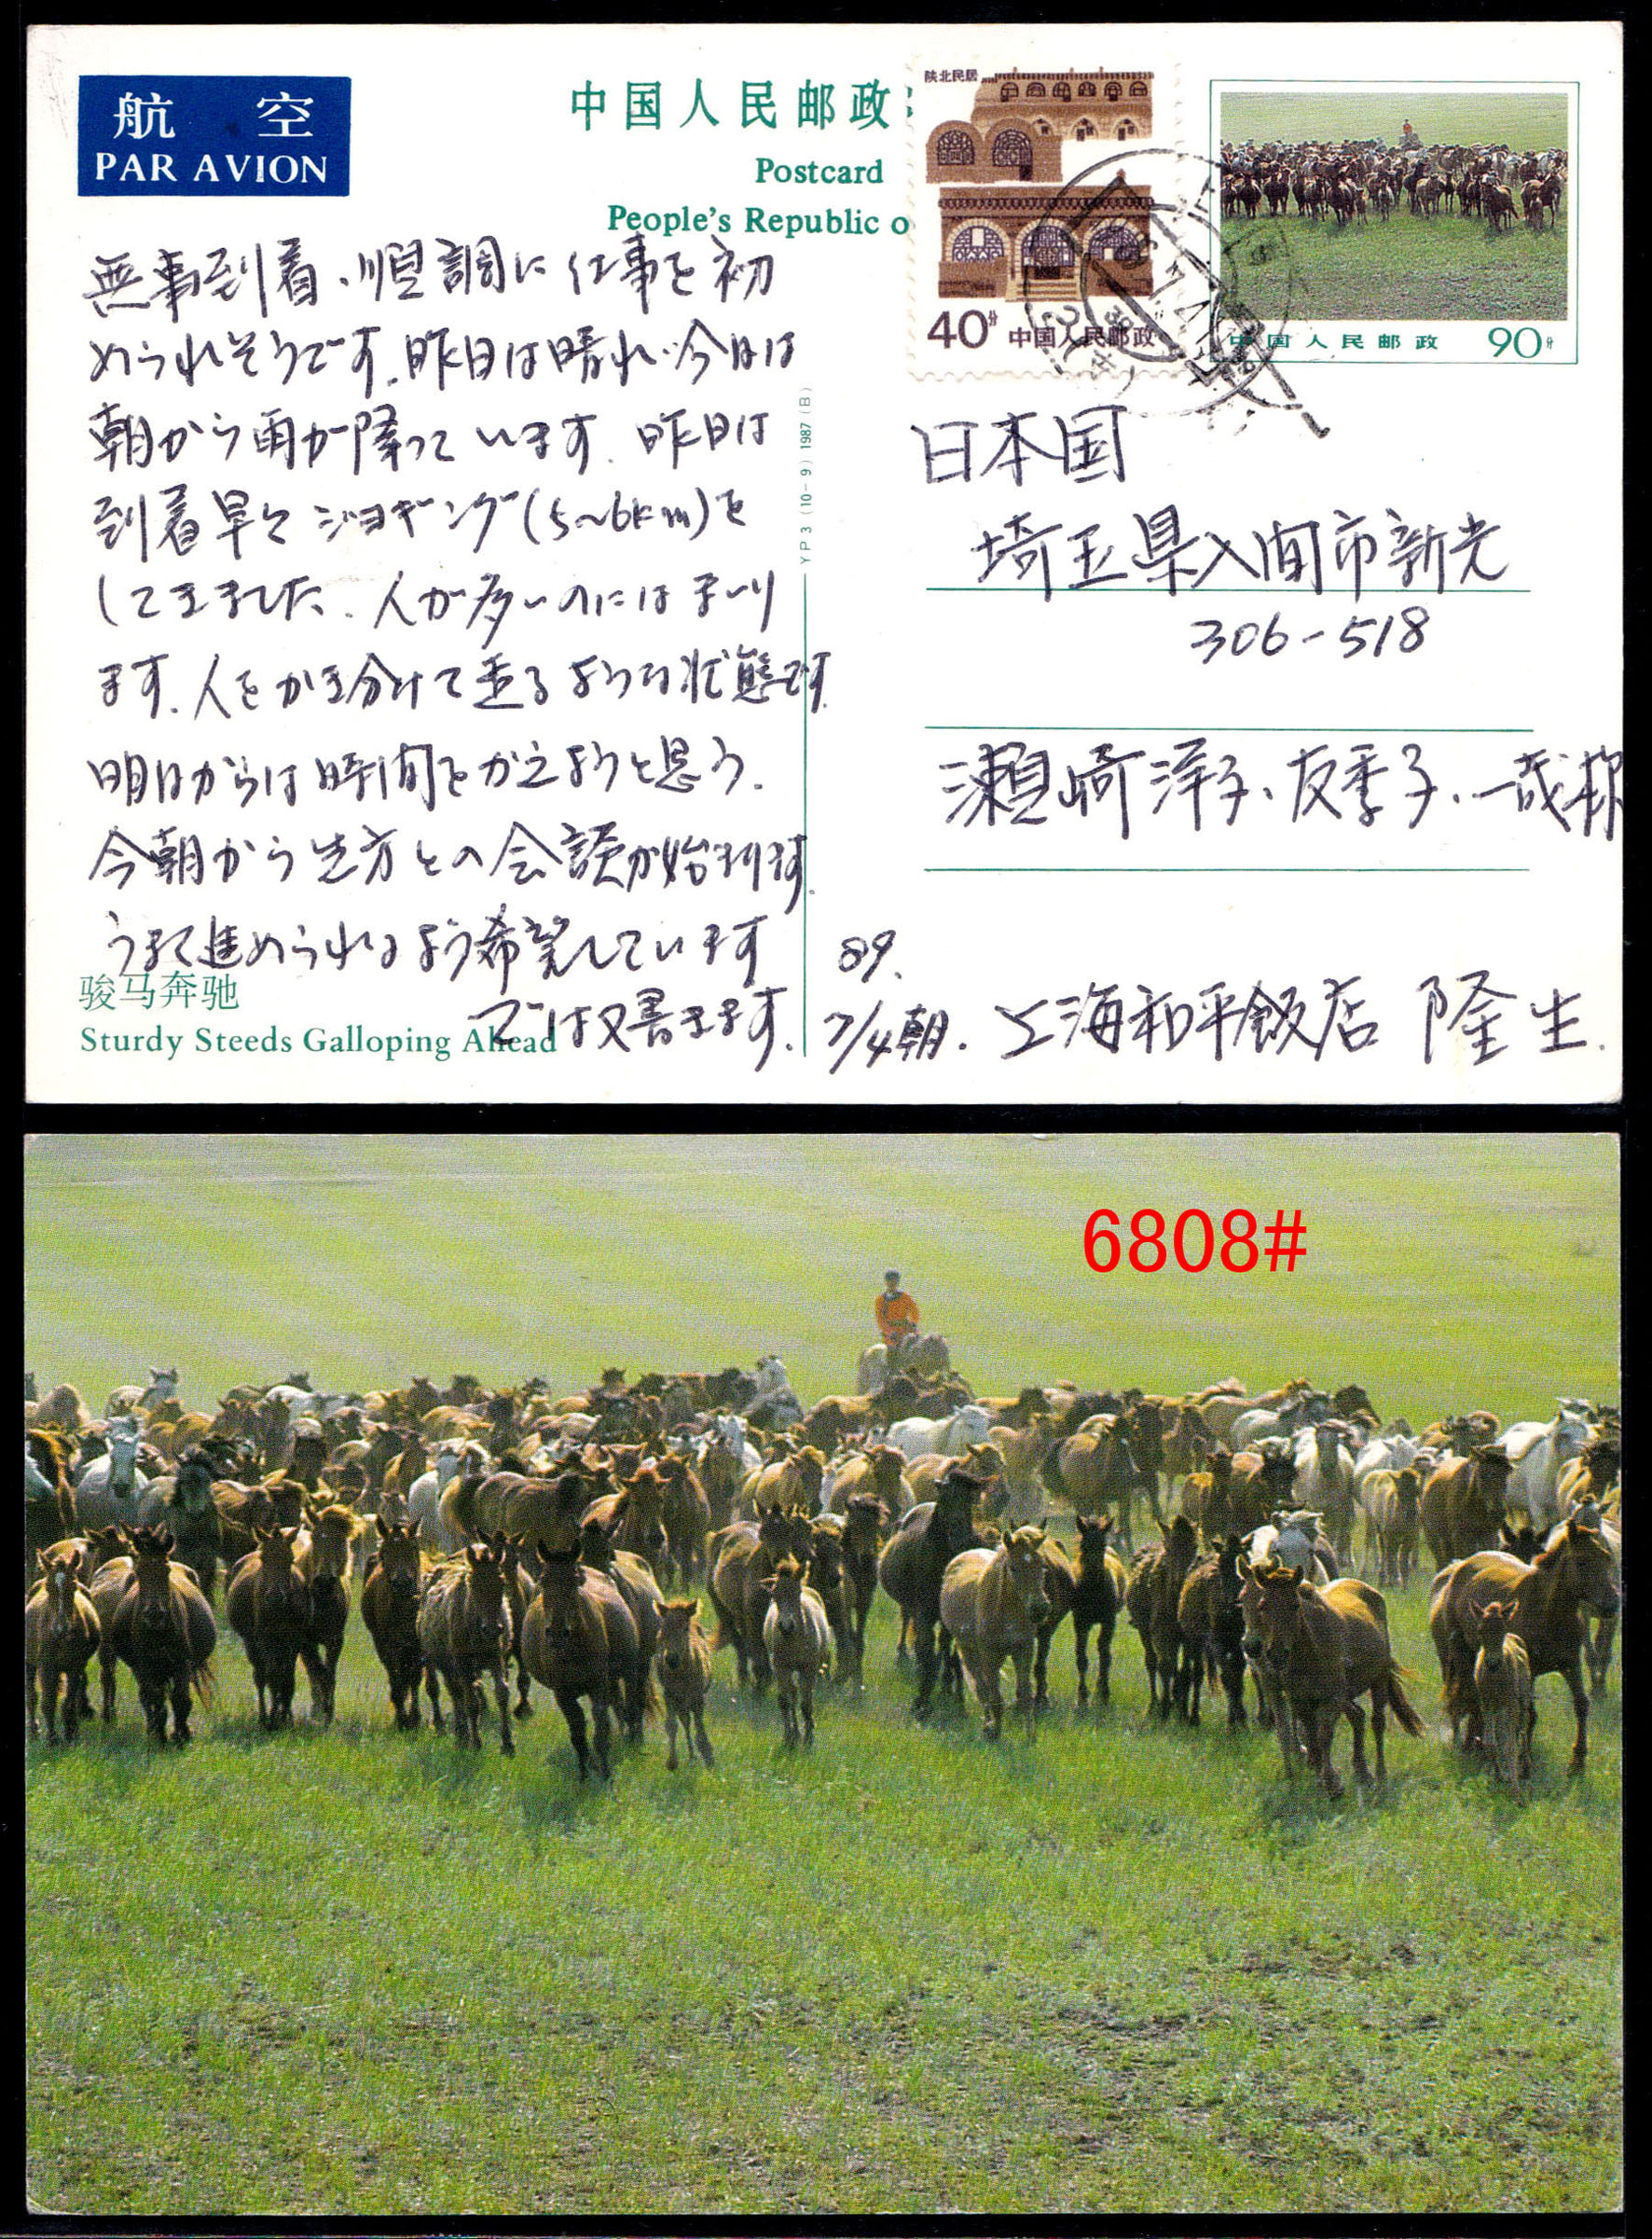 航 空
PAR AVION
中国人民邮政
Postcard
People's Republic o
陕北民居
40分 中国人民邮政
中国人民邮政 90分
無事到着、順調に仕事を初
められそうです。昨日は晴れ、今日は
朝から雨が降っています。昨日は
到着早々ジョギング(5〜6km)を
してきました。人が多いのにはまいり
ます。人をかき分けて走るような状態です。
明日からは時間をかえようと思う。
今朝から先方との会談が始まります。
うまく進められるよう希望しています
では又書きます。
89.
7/4朝. 上海和平飯店 隆生.
YP3 (10-9) 1987 (B)
日本国
埼玉県入間市新光
306-518
瀬崎洋子、友季子、一哉様
骏马奔驰
Sturdy Steeds Galloping Ahead
6808#